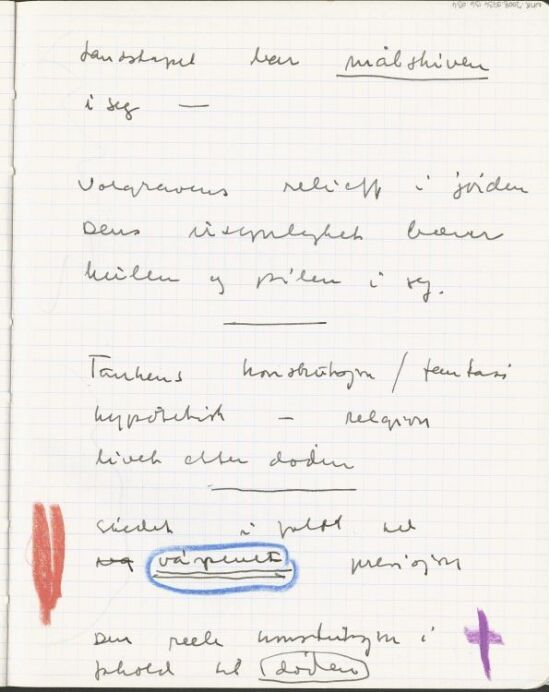 Landskapet bær målskiven
i seg —
Volgravens relieff i jorden
Dens usynlighet bærer
kulen og pilen i seg.
Tankens konstruksjon / fantasi
hypotetisk – religion
livet etter døden
Stedet i forhold til
våpenet presisjon
Den reele konstruksjon i
forhold til døden